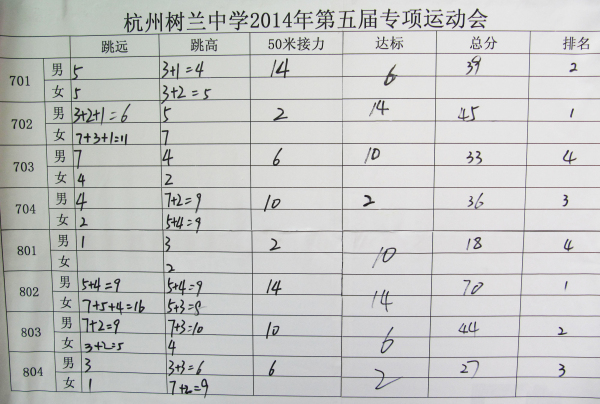 杭州树兰中学2014年第五届专项运动会
跳远 跳高 50米接力 达标 总分 排名
701 男 5 3+1=4 14 6 39 2
女 5 3+2=5
702 男 3+2+1=6 5 2 14 45 1
女 7+3+1=11 7
703 男 7 4 6 10 33 4
女 4 2
704 男 4 7+2=9 10 2 36 3
女 2 5+4=9
801 男 1 3 2 10 18 4
女 2
802 男 5+4=9 5+4=9 14 14 70 1
女 7+5+4=16 5+3=8
803 男 7+2=9 7+3=10 10 6 44 2
女 3+2=5 4
804 男 3 3+3=6 6 2 27 3
女 1 7+2=9